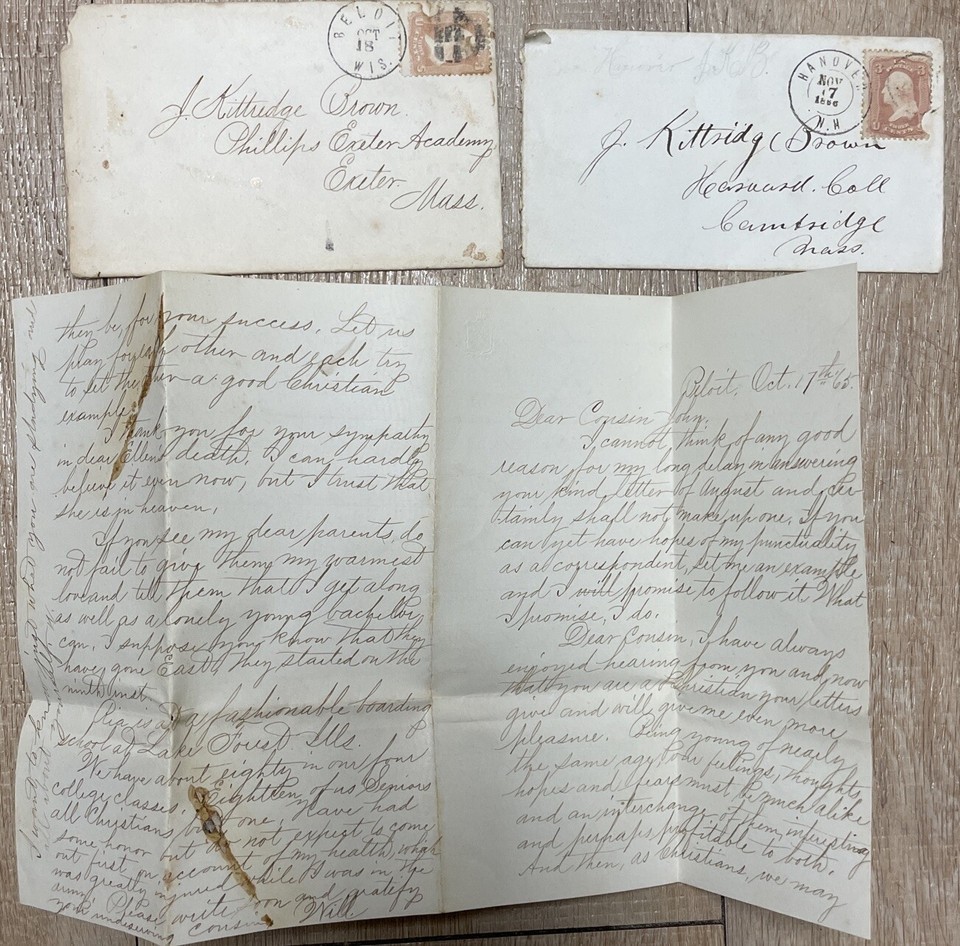 BELOIT
OCT
18
WIS.
J. Kittredge Brown.
Phillips Exeter Academy
Exeter.
Mass.
HANOVER
NOV
17
1866
N.H
J. Kittridge Brown
Harvard. Coll
Cambridge
Mass.
Beloit, Oct. 17th/65.
Dear Cousin John.
I cannot think of any good
reason for my long delay in answering
your kind letter of August and cer-
tainly shall not make up one. If you
can yet have hopes of my punctuality
as a correspondent, set me an example
and I will promise to follow it. What
I promise, I do.
Dear Cousin, I have always
enjoyed hearing from you and now
that you are a Christian your letters
give and will give me even more
pleasure. Being young of nearly
the same age, our feelings, thoughts,
hopes and fears must be much alike
and an interchange of them, interesting
and perhaps profitable to both.
And then, as Christians, we may
then be for your success. Let us
pray for each other and each try
to set the other a good Christian
example.
I thank you for your sympathy
in dear Ellen's death. I can hardly
believe it even now, but I trust that
she is in heaven.
If you see my dear parents, do
not fail to give them my warmest
love and tell them that I get along
as well as a lonely young bachelor,
can. I suppose you know that they
have gone East. They started on the
ninth inst.
is at a fashionable boarding
school at Lake Forest Ills.
We have about eighty in our four
college classes. Eighteen of us Seniors
all Christians but one. Have had
some honor but do not expect to come
out first on account of my health, which
was greatly injured while I was in the
army. Please write soon and gratify
your undeserving cousin Will
I want to know just what you are studying and
all about yourself.